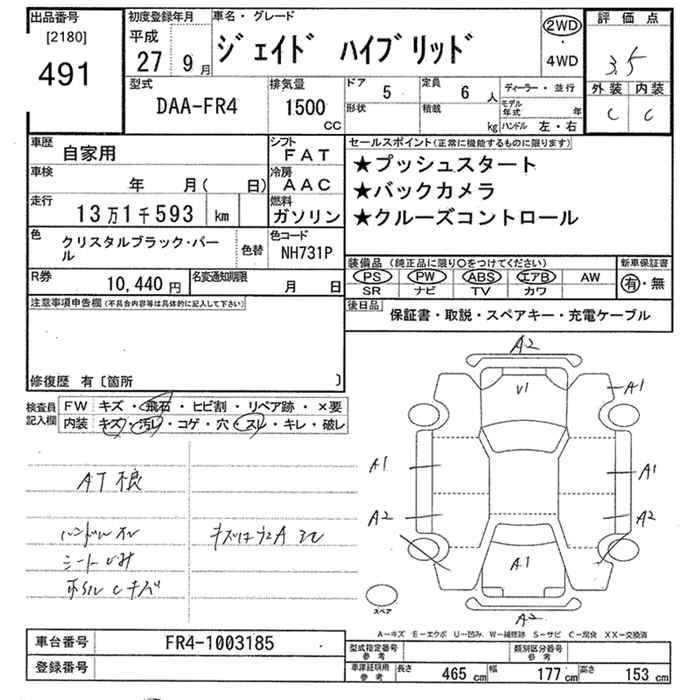 出品番号
[2180]
491
初度登録年月
平成
27 9月
車名・グレード
ジェイド ハイブリッド
2WD
・
4WD
評価点
3.5
外装 内装
C C
型式
DAA-FR4
排気量
1500
CC
ドア 5
形状
定員 6 人
積載 kg
ディーラー・並行
モデル年式 年
ハンドル 左・右
車歴 自家用
車検 年 月( 日)
走行 13万1千593 km
シフト FAT
冷房 AAC
燃料 ガソリン
セールスポイント(正常に機能するものに限ります)
★プッシュスタート
★バックカメラ
★クルーズコントロール
色 クリスタルブラック・パール
色替
色コード NH731P
装備品 (純正品に限り○をつけてください)
PS PW ABS エアB AW
SR ナビ TV カワ
新車保証書
有・無
R券 10,440円
名変通知期限 月 日
後日品
保証書・取説・スペアキー・充電ケーブル
注意事項申告欄(不具合内容等は具体的に記入して下さい)
修復歴 有〔箇所 〕
検査員記入欄
FW キズ・飛石・ヒビ割・リペア跡・×要
内装 キズ・汚レ・コゲ・穴・スレ・キレ・破レ
AT
ハンドル
シート
A2
V1
A1
A1
A1
A2
A2
A1
A2
スペア
A-キズ E-エクボ U-凹み W-補修跡 S-サビ C-腐食 XX-交換済
車台番号 FR4-1003185
登録番号
型式指定番号 参考
類別区分番号 参考
車庫証明用 参考
長さ 465 cm 幅 177 cm 高さ 153 cm